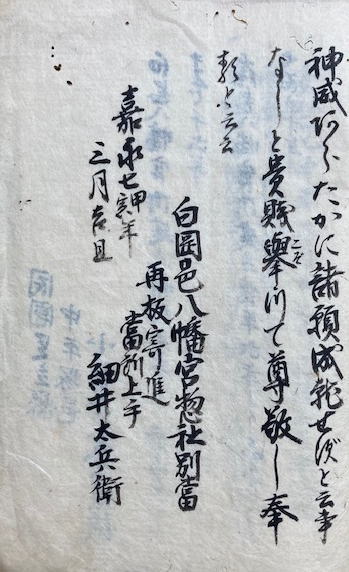 神威あらたかに諸願成就せずと云事
なしと貴賤挙つて尊敬し奉
ると云云
白岡邑八幡宮惣社別當
再板寄進
當所上手
細井太兵衛
嘉永七甲寅年
三月吉旦